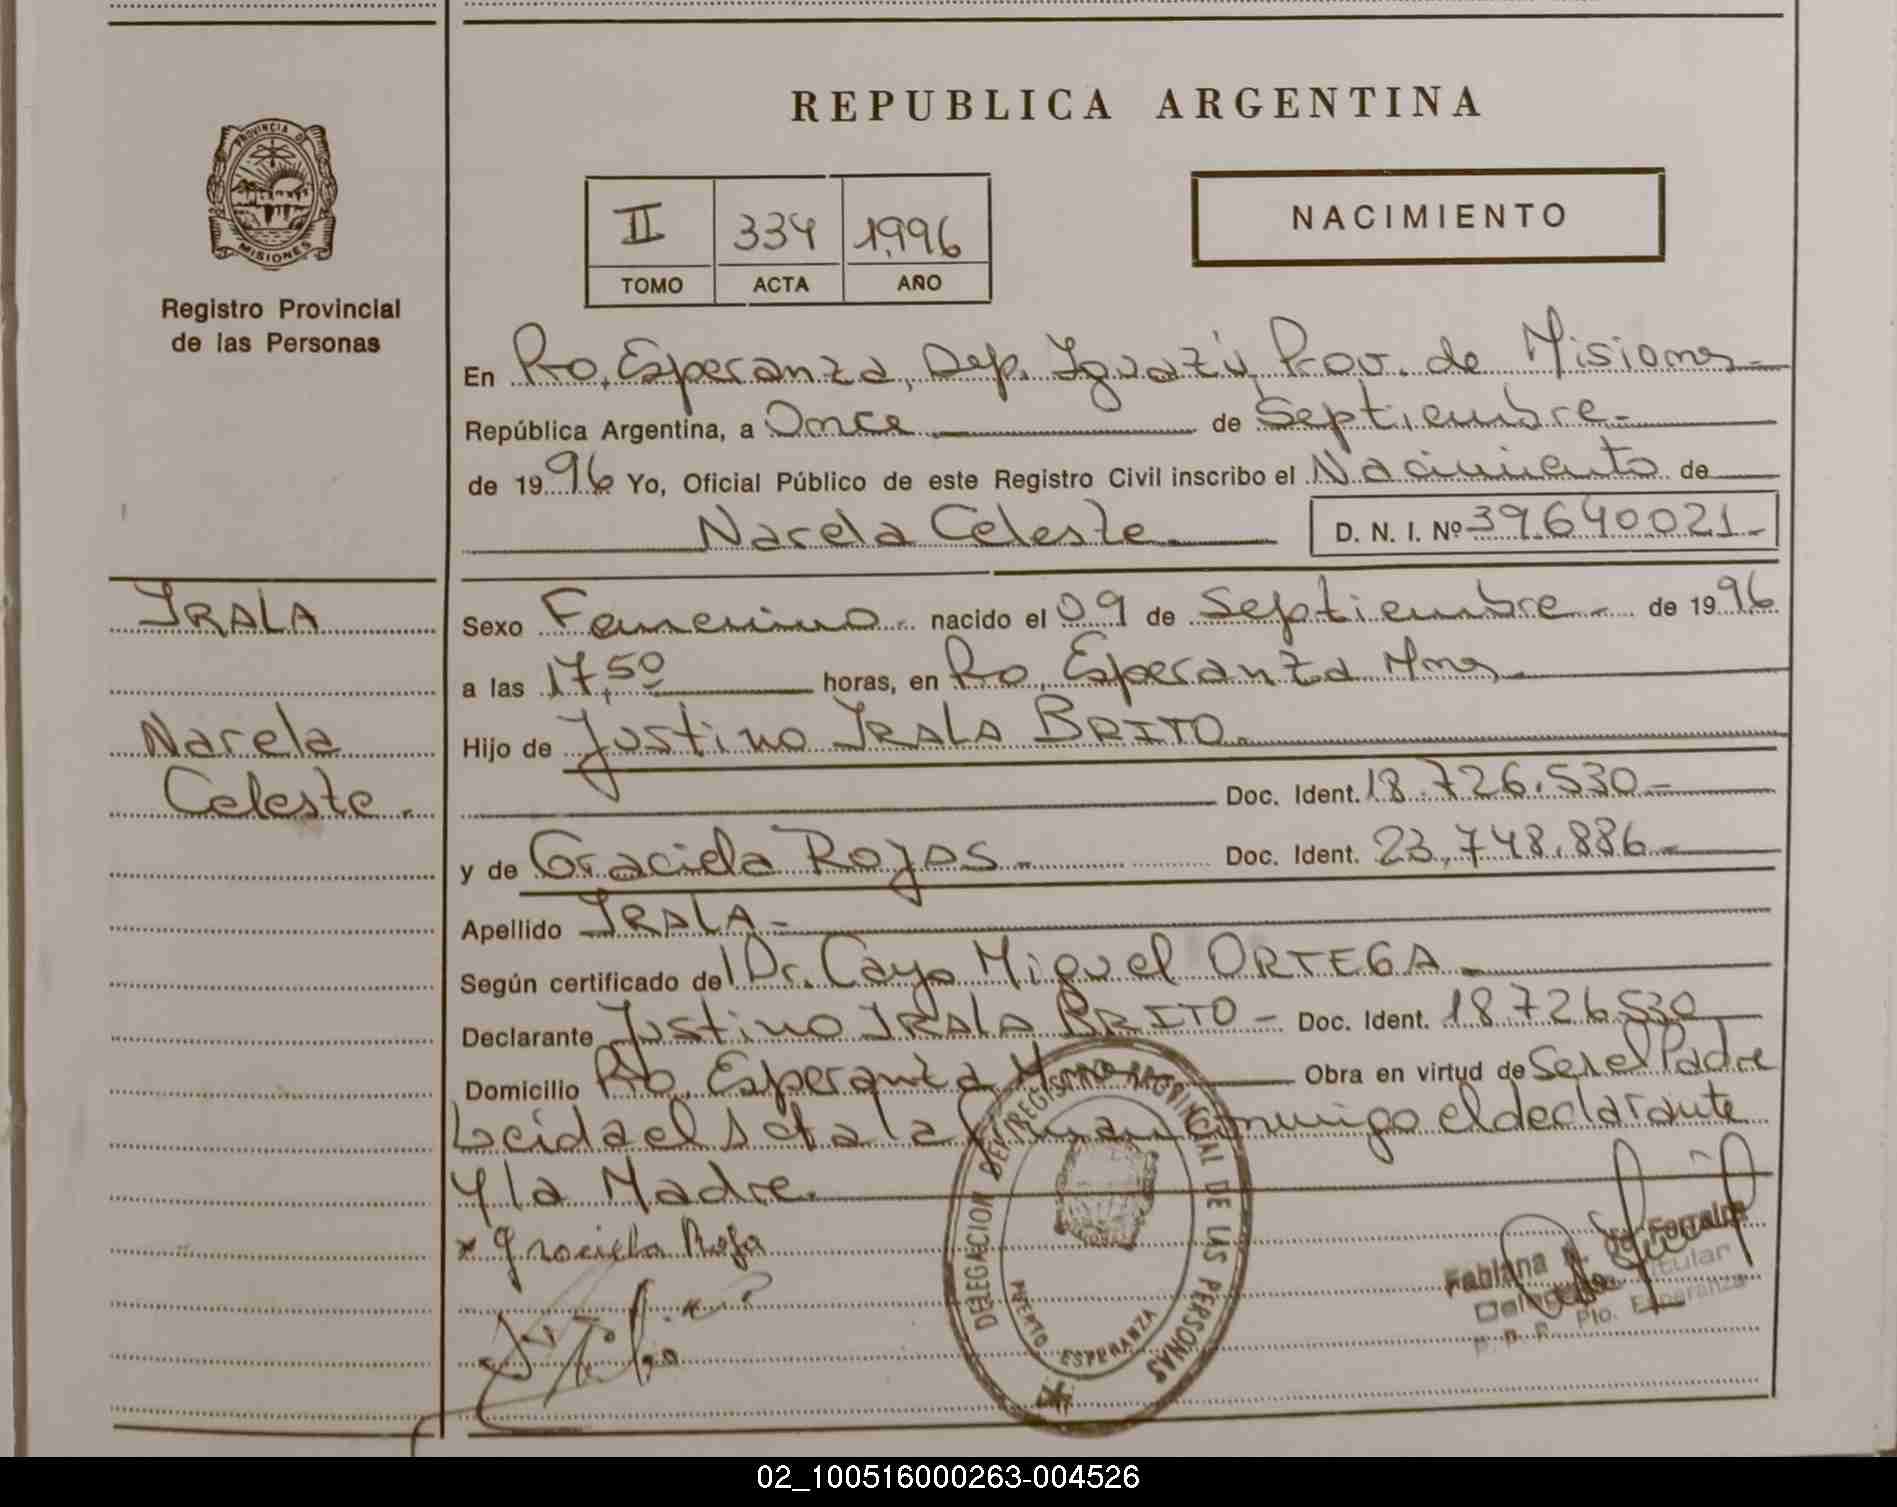 REPUBLICA ARGENTINA
PROVINCIA D
MISIONES
Registro Provincial
de las Personas
II 334 1996
TOMO ACTA AÑO
NACIMIENTO
En Pto. Esperanza, Dep. Iguazú, Prov. de Misiones
República Argentina, a Once de Septiembre
de 1996 Yo, Oficial Público de este Registro Civil inscribo el Nacimiento de
Narela Celeste D. N. I. Nº 39.640.021
IRALA
Narela
Celeste.
Sexo Femenino nacido el 09 de Septiembre de 1996
a las 17,50 horas, en Pto. Esperanza Mnes
Hijo de Justino IRALA BRITO
Doc. Ident. 18.726.530
y de Graciela Rojas Doc. Ident. 23.748.886
Apellido IRALA
Según certificado del Dr. Cayo Miguel ORTEGA
Declarante Justino IRALA BRITO Doc. Ident. 18726530
Domicilio Pto. Esperanza Obra en virtud de Ser el Padre
Leida el Acta la conmigo el declarante
y la Madre.
Graciela Roja
DELEGACION DEL REGISTRO PROVINCIAL DE LAS PERSONAS
PUERTO ESPERANZA
Fabiana
Titular
Pto. Esperanza
02_100516000263-004526